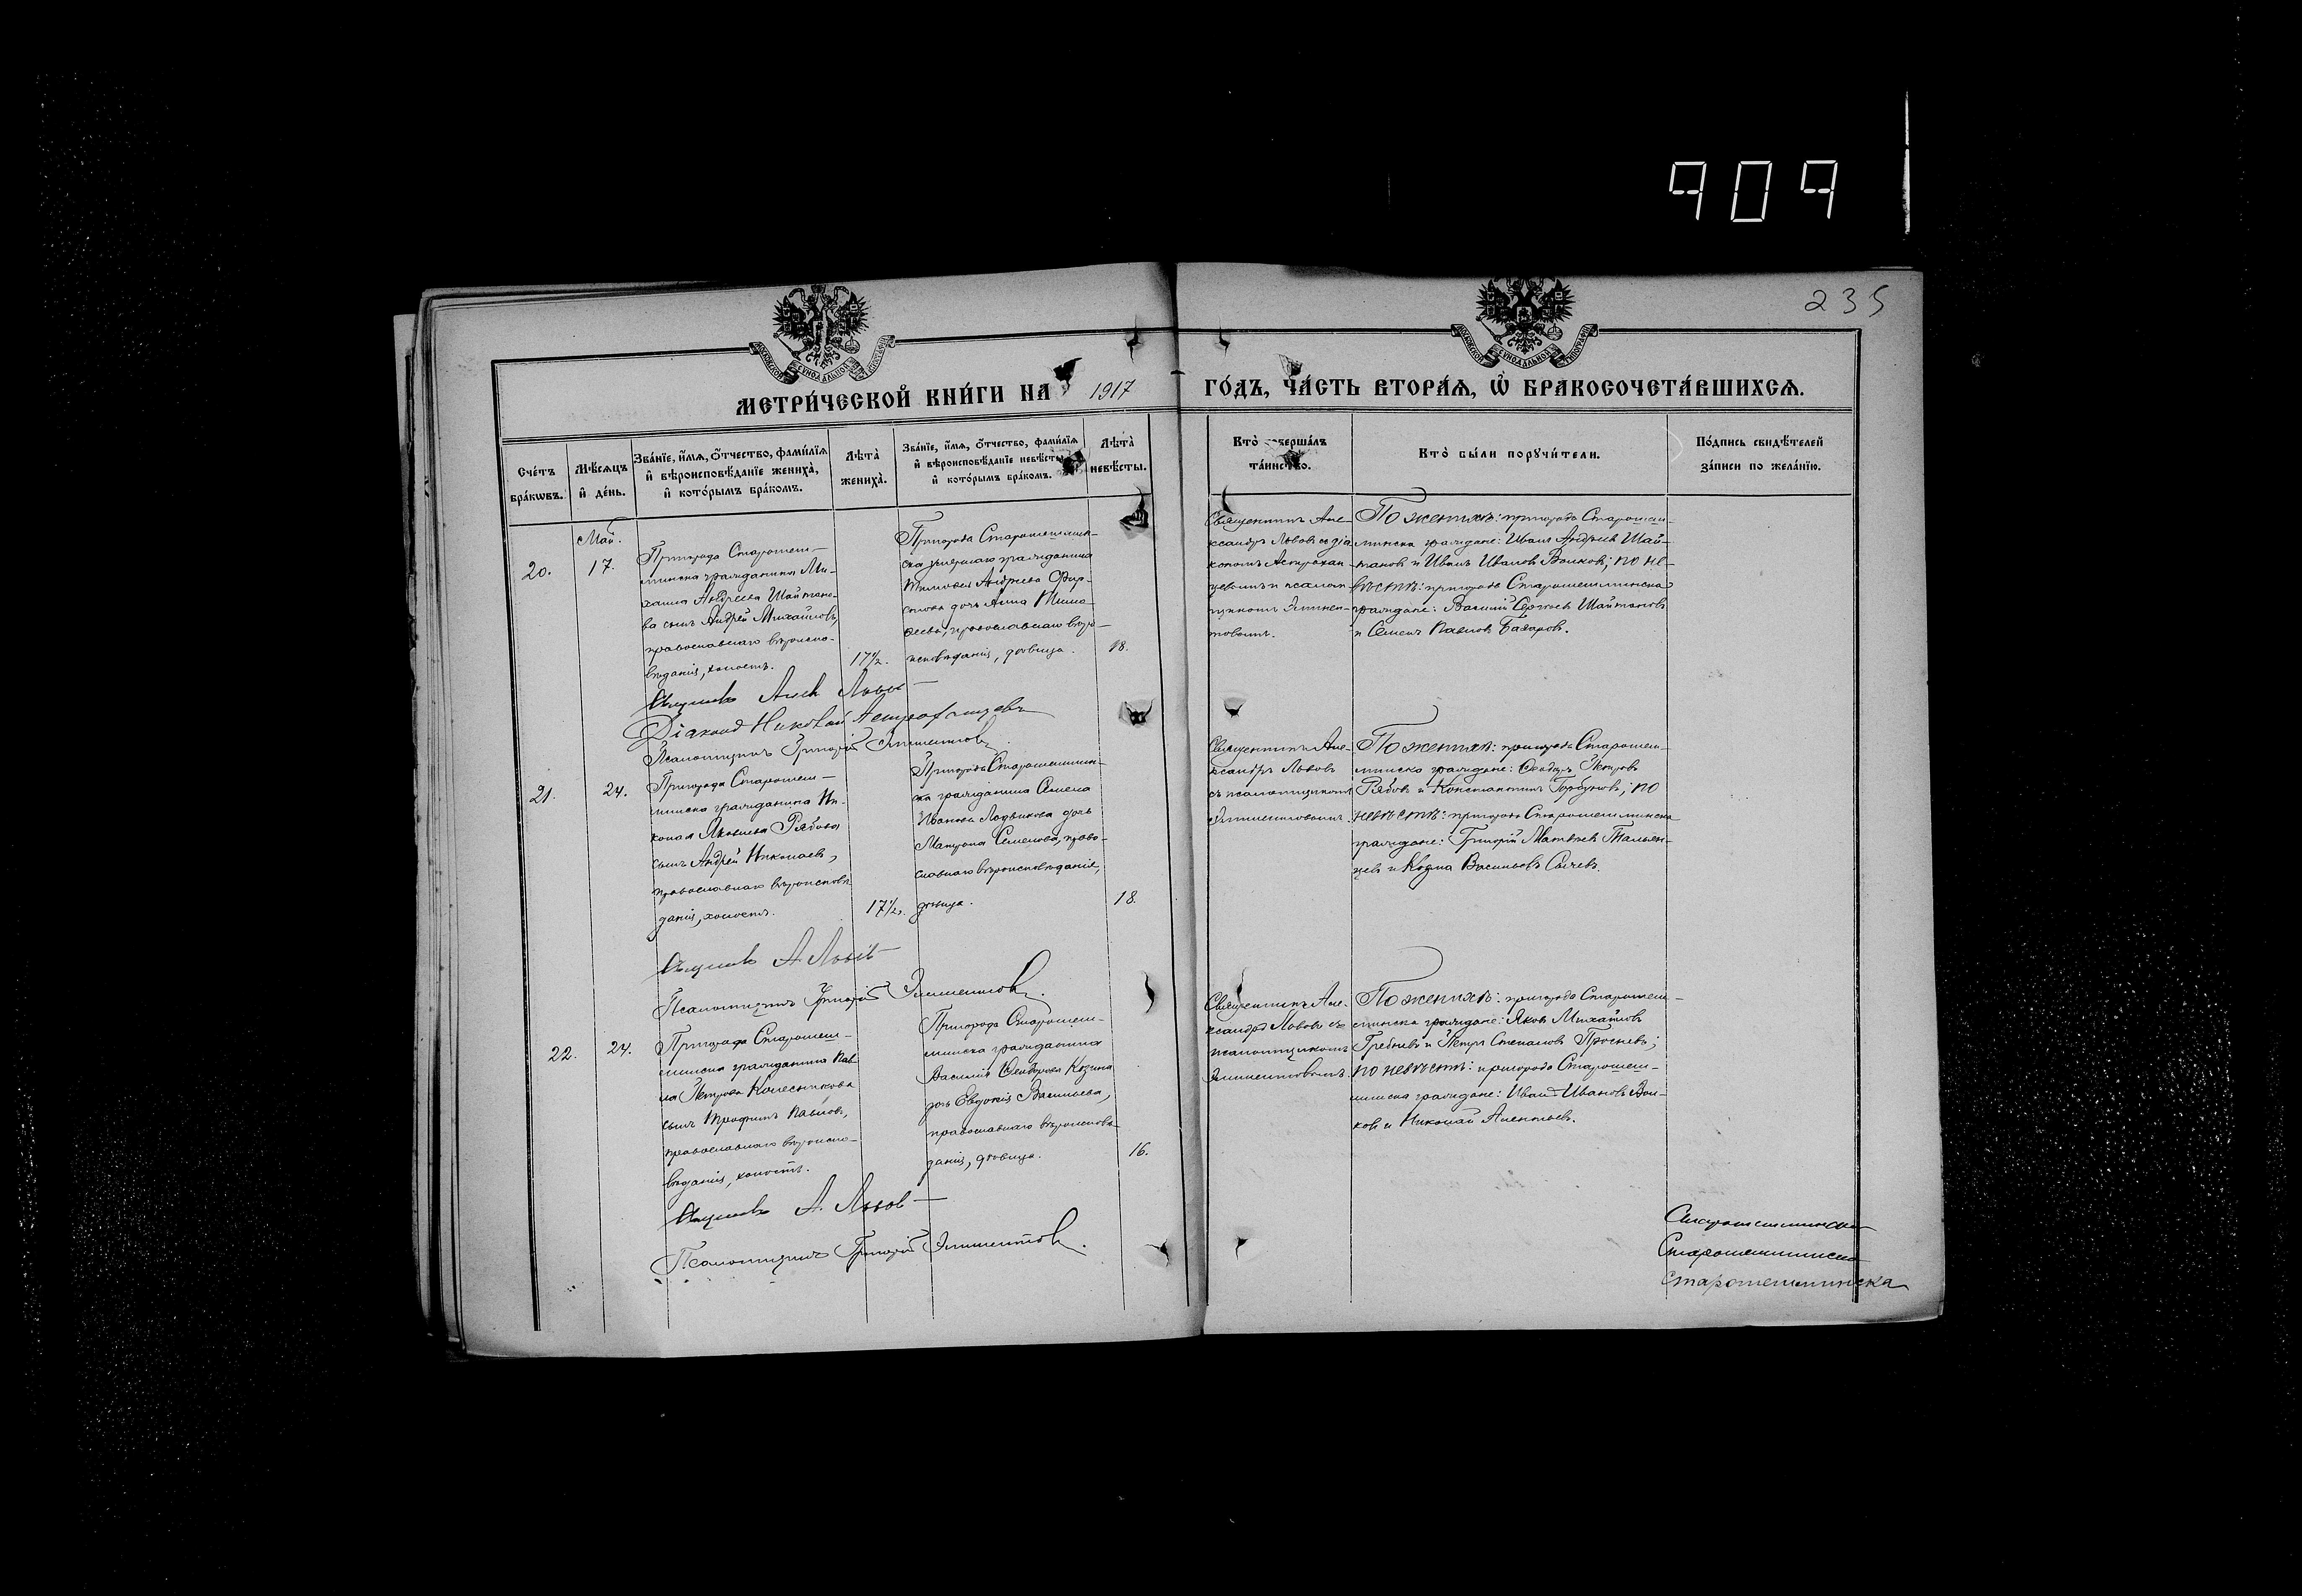 909
235
МЕТРИ́ЧЕСКОЙ КНИ́ГИ НА 1917 ГО́ДЪ, ЧА́СТЬ ВТОРА́Я, Ѡ БРАКОСОЧЕТА́ВШИХСЯ.
Сче́тъ бра́кѡвъ.
Мѣ́сяцъ и де́нь.
Зва́нїе, и́мя, ѻ́тчество, фами́лїя
и вѣроисповѣ́данїе жениха̀,
и кото́рымъ бра́комъ.
Лѣта̀
жениха̀.
Зва́нїе, и́мя, ѻ́тчество, фами́лїя
и вѣроисповѣ́данїе невѣ́сты
и кото́рымъ бра́комъ.
Лѣта̀
невѣ́сты.
Кто̀ соверша́лъ
та́инство.
Кто̀ бы́ли порꙋчи́тели.
По́дпись свидѣ́телей
за́писи по жела́нїю.
Май.
20.
17.
Пригорода Старошеш-
минска гражданина Ми-
хаила Андреева Шайтано-
ва сынъ Андрей Михайловъ,
православнаго вѣроиспо-
вѣданія, холостъ.
17½.
Пригорода Старошешмин-
ска умершаго гражданина
Тимофея Андреева Фир-
сова дочь Анна Тимо-
феева, православнаго вѣро-
исповѣданія, дѣвица.
18.
Священникъ Але-
ксандръ Львовъ съ діа-
кономъ Астрахан-
цевымъ и псалом-
щикомъ Элпиден-
товымъ.
По женихѣ: пригорода Старошеш-
минска граждане: Иванъ Андреевъ Шай-
тановъ и Иванъ Ивановъ Волковъ; по не-
вѣстѣ: пригорода Старошешминска
граждане: Василій Сергѣевъ Шайтановъ
и Семенъ Павловъ Базаровъ.
Священникъ Алек Львовъ
Діаконъ Николай Астраханцевъ
Псаломщикъ Григорій
21.
24.
Пригорода Старошеш-
минска гражданина Ни-
колая Яковлева Рябова
сынъ Андрей Николаевъ,
православнаго вѣроисповѣ-
данія, холостъ.
17½.
Пригорода Старошешмин-
ска гражданина Семена
Иванова Ладвикова дочь
Матрона Семенова, право-
славнаго вѣроисповѣданія,
дѣвица.
18.
Священникъ Але-
ксандръ Львовъ
съ псаломщикомъ
По женихѣ: пригорода Старошеш-
минска граждане: Ѳеодоръ Петровъ
Рябовъ и Константинъ Горбуновъ; по
невѣстѣ: пригорода Старошешминска
граждане: Григорій Матвѣевъ Тальян-
цевъ и Козма Васильевъ Сычевъ.
Священникъ А. Львовъ
Псаломщикъ Григорій
22.
24.
Пригорода Старошеш-
минска гражданина Пав-
ла Петрова Колесникова
сынъ Трофимъ Павловъ,
православнаго вѣроиспо-
вѣданія, холостъ.
Пригорода Старошеш-
минска гражданина
Василія Ѳеодорова Козина
дочь Евдокія Васильева,
православнаго вѣроисповѣ-
данія, дѣвица.
16.
Священникъ Але-
ксандръ Львовъ съ
псаломщикомъ
По женихѣ: пригорода Старошеш-
минска граждане: Яковъ Михайловъ
Гребневъ и Петръ Степановъ Просневъ;
по невѣстѣ: пригорода Старошеш-
минска граждане: Иванъ Ивановъ Вол-
ковъ и Николай Алентьевъ.
Священникъ А. Львовъ
Псаломщикъ Григорій
Старошешминска
Старошешминска
Старошешминска